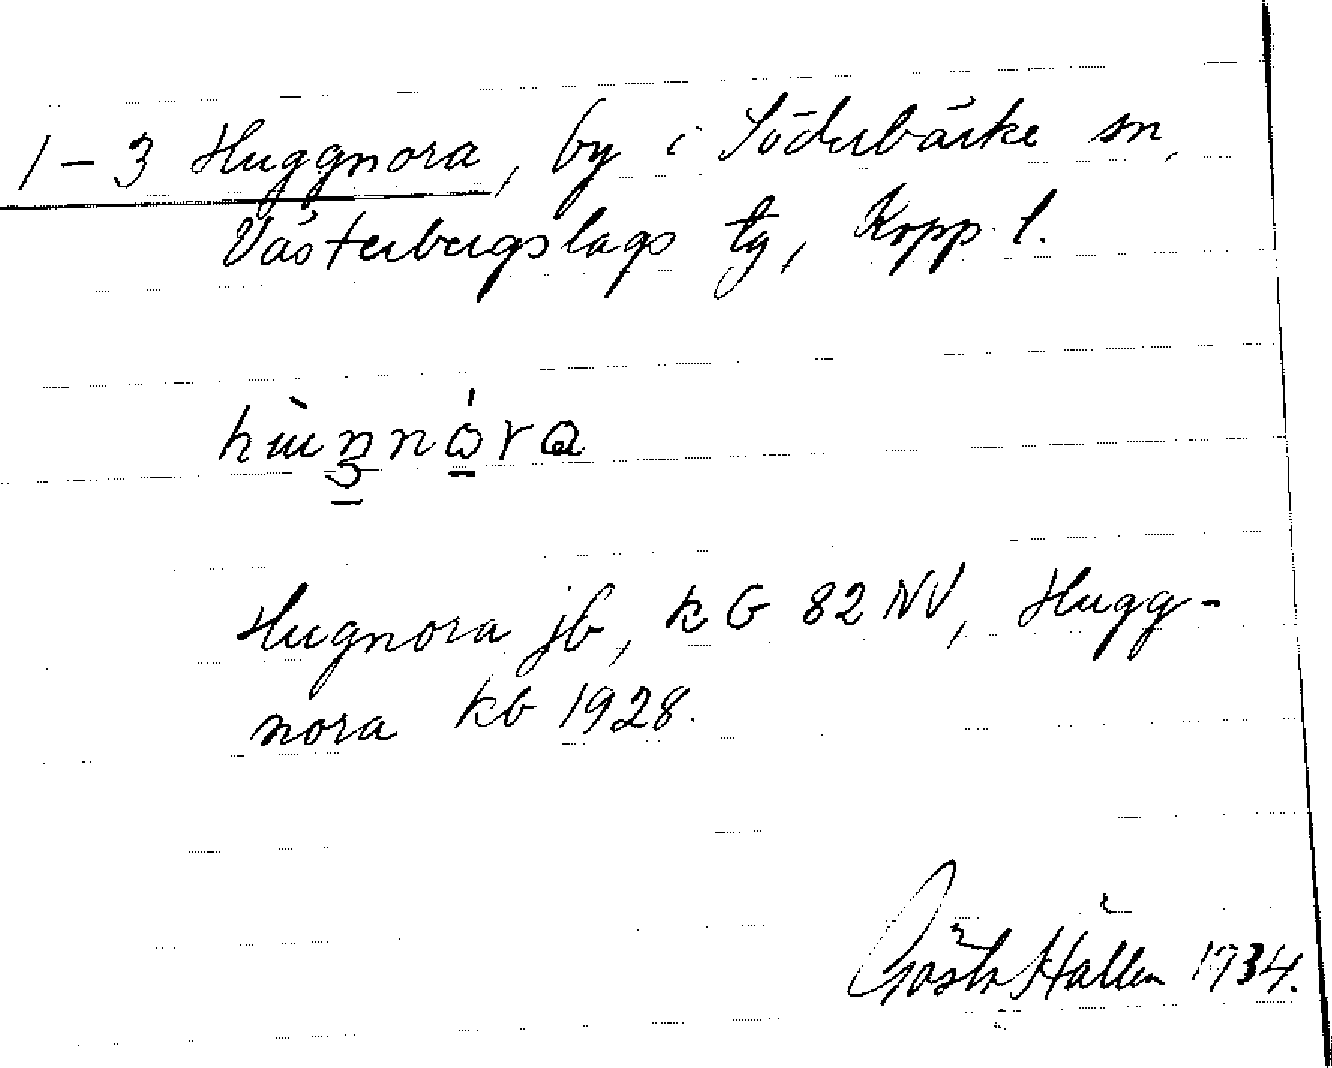 1-3 Huggnora, by i Söderbärke sn,
Västerbergslags tg, Kopp. l.
Hugnora jb, k G 82 NV, Hugg-
nora kb 1928.
Gösta Hållen 1934.